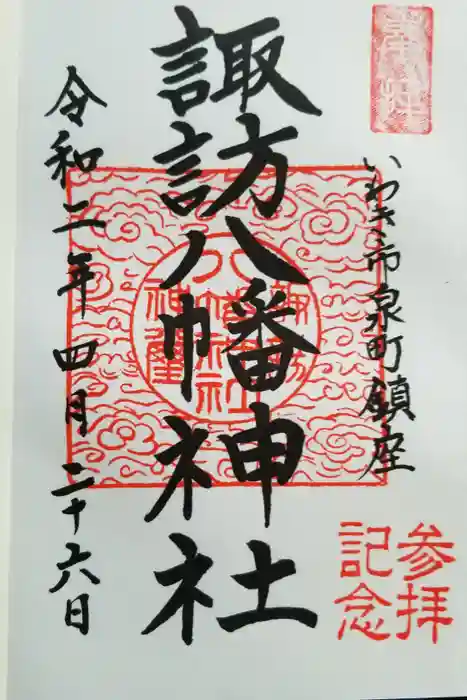 いわき市泉町鎮座
参拝
記念
諏訪八幡神社
令和二年四月二十六日